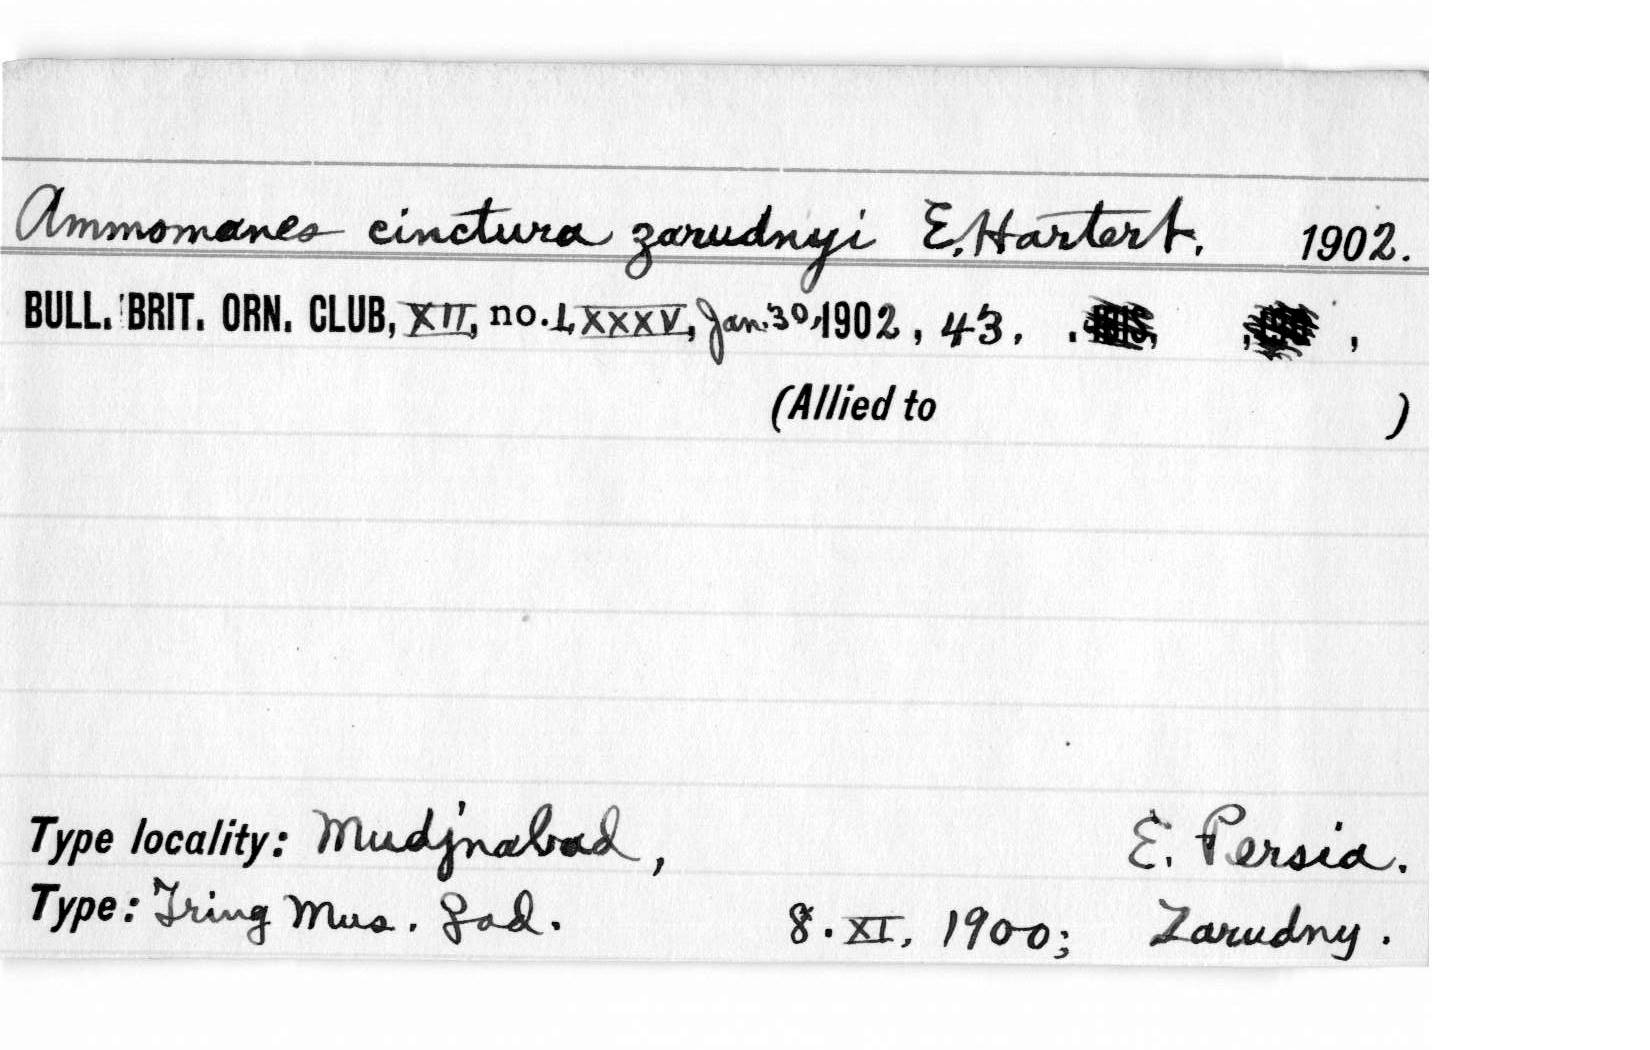 Ammomanes cinctura zarudnyi E. Hartert. 1902.
BULL. BRIT. ORN. CLUB, XII, no. LXXXV, Jan. 30, 1902, 43, . , , ,
(Allied to )
Type locality: Mudjnabad, E. Persia.
Type: Tring Mus. ad. 8. XI, 1900; Zarudny.